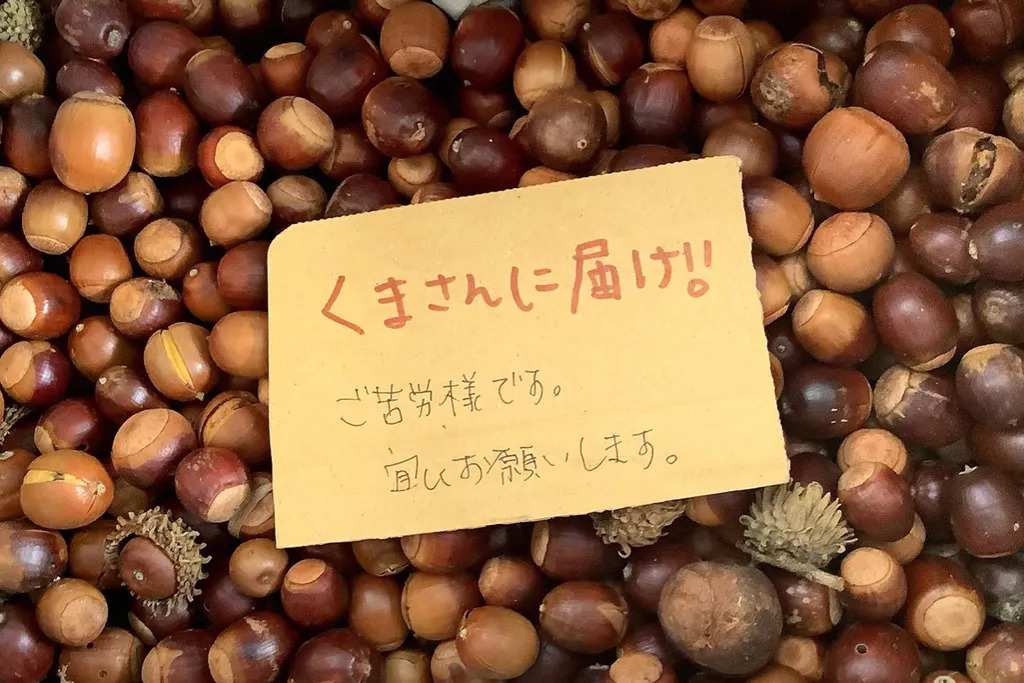 くまさんに届け!!
ご苦労様です。
宜しお願いします。